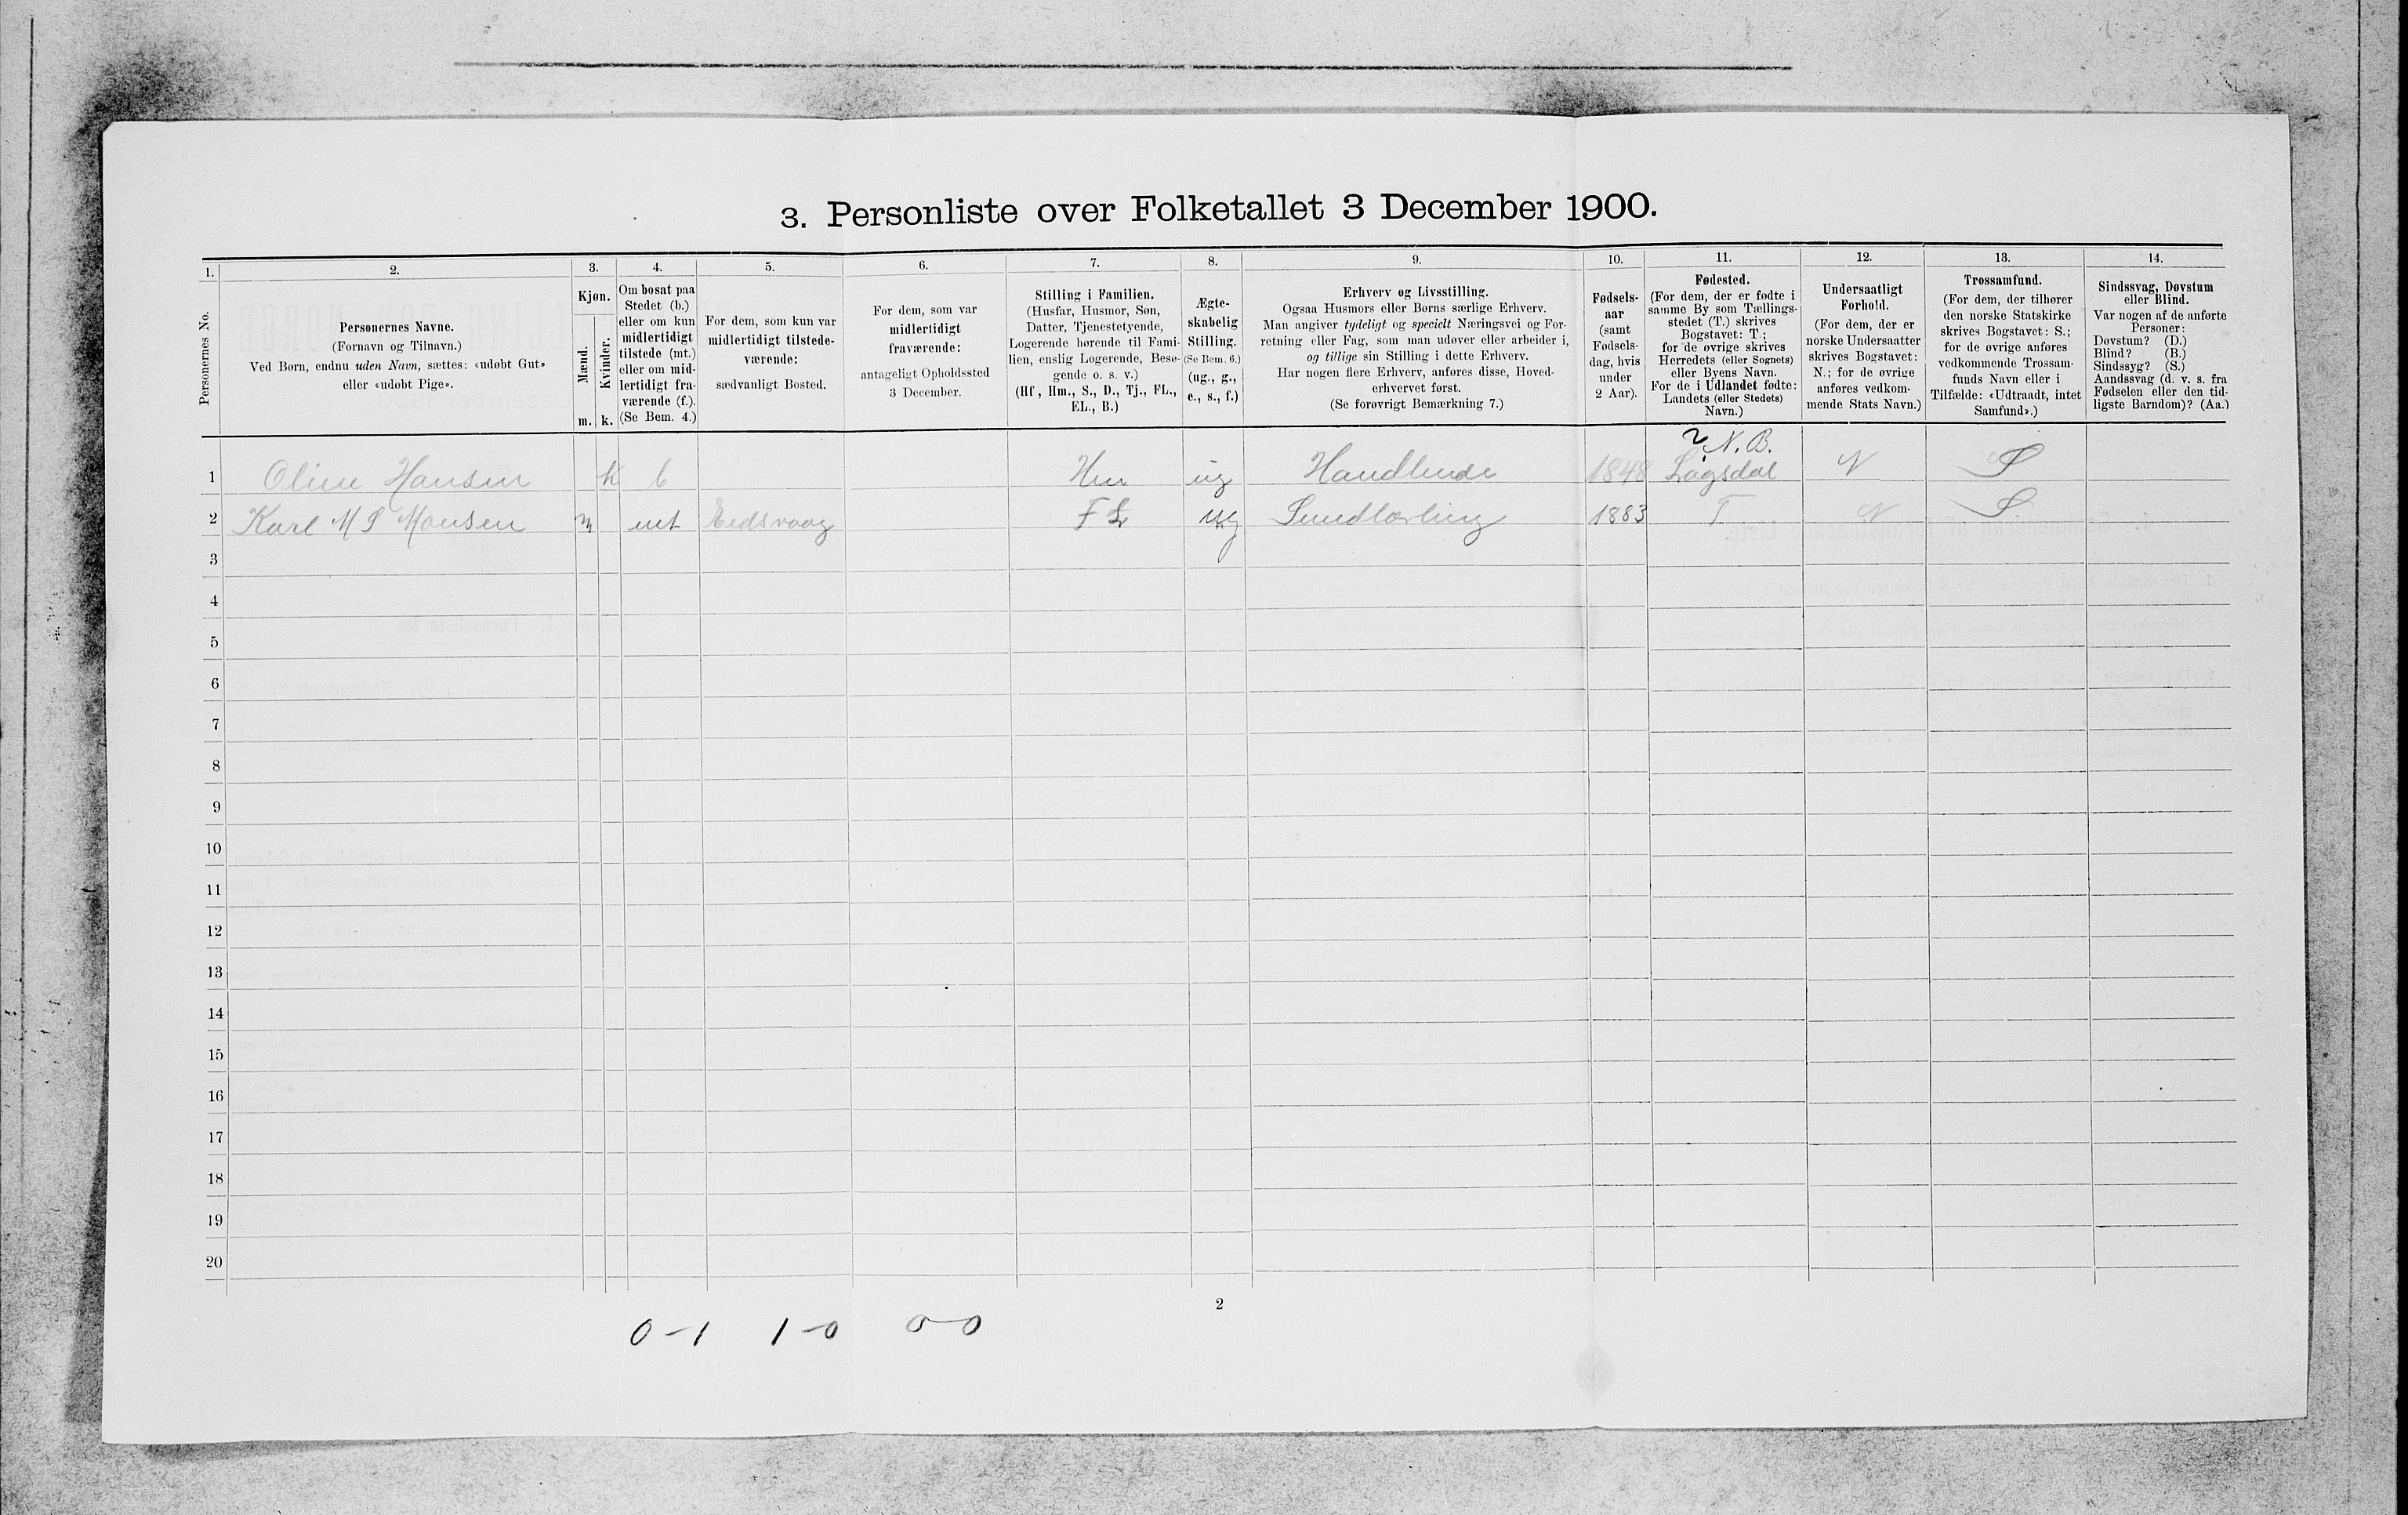 3. Personliste over Folketallet 3 December 1900.
1. 2. 3. 4. 5. 6. 7. 8. 9. 10. 11. 12. 13. 14.
Personernes No.
Personernes Navne.
(Fornavn og Tilnavn.)
Ved Børn, endnu uden Navn, sættes: «udøbt Gut»
eller «udøbt Pige».
Kjøn.
Mænd.
Kvinder.
m. k.
Om bosat paa
Stedet (b.)
eller om kun
midlertidigt
tilstede (mt.)
eller om mid-
lertidigt fra-
værende (f.).
(Se Bem. 4.)
For dem, som kun var
midlertidigt tilstede-
værende:
sædvanligt Bosted.
For dem, som var
midlertidigt
fraværende:
antageligt Opholdssted
3 December.
Stilling i Familien.
(Husfar, Husmor, Søn,
Datter, Tjenestetyende,
Logerende hørende til Fami-
lien, enslig Logerende, Besø-
gende o. s. v.)
(Hf., Hm., S., D., Tj., FL.,
EL., B.)
Ægte-
skabelig
Stilling.
(Se Bem. 6.)
(ug., g.,
e., s., f.)
Erhverv og Livsstilling.
Ogsaa Husmors eller Børns særlige Erhverv.
Man angiver tydeligt og specielt Næringsvei og For-
retning eller Fag, som man udøver eller arbeider i,
og tillige sin Stilling i dette Erhverv.
Har nogen flere Erhverv, anføres disse, Hoved-
erhvervet først.
(Se forøvrigt Bemærkning 7.)
Fødsels-
aar
(samt
Fødsels-
dag, hvis
under
2 Aar).
Fødested.
(For dem, der er fødte i
samme By som Tællings-
stedet (T.) skrives
Bogstavet: T.;
for de øvrige skrives
Herredets (eller Sognets)
eller Byens Navn.
For de i Udlandet fødte:
Landets (eller Stedets)
Navn.)
Undersaatligt
Forhold.
(For dem, der er
norske Undersaatter
skrives Bogstavet:
N.; for de øvrige
anføres vedkom-
mende Stats Navn.)
Trossamfund.
(For dem, der tilhører
den norske Statskirke
skrives Bogstavet: S.;
for de øvrige anføres
vedkommende Trossam-
funds Navn eller i
Tilfælde: «Udtraadt, intet
Samfund».)
Sindssvag, Døvstum
eller Blind.
Var nogen af de anførte
Personer:
Døvstum? (D.)
Blind? (B.)
Sindssyg? (S.)
Aandssvag (d. v. s. fra
Fødselen eller den tid-
ligste Barndom)? (Aa.)
N. B.
1 Oline Hansen k b Hm ug Handlende 1848 Lagsdal N S
2 Karl M S Monsen m mt Eidsvaag FL ug 1883 T N S
3
4
5
6
7
8
9
10
11
12
13
14
15
16
17
18
19
20
2
0-1 1-0 0-0